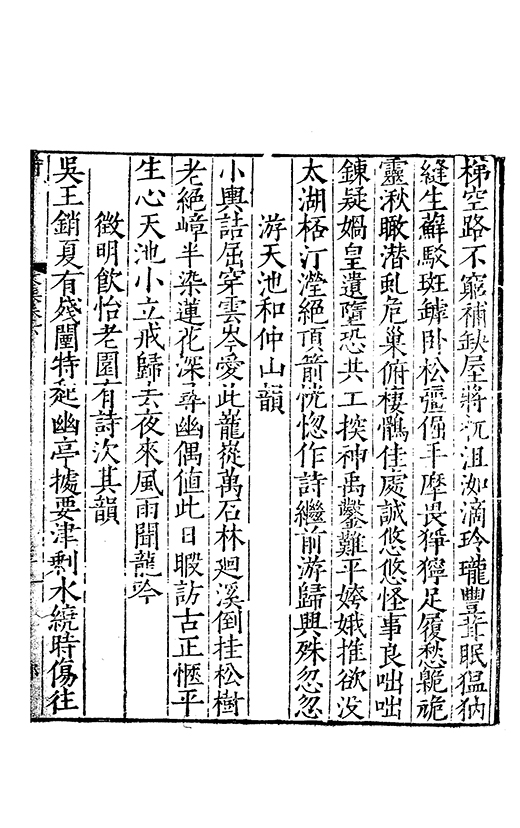 梯空路不窮補缺屋將杌沮洳滴玲瓏豐茸眠猛㺃
縫生蘚駁斑罅卧松彊倔手摩畏獰獰足履愁臲卼
靈湫瞰潜虬危巢俯棲鶻佳處誠悠悠怪事良咄咄
鍊疑媧皇遺墮恐共工揬神禹鑿難平姱娥推欲没
太湖栝汀瀅絕頂箭恍惚作詩繼前游歸興殊忽忽
游天池和仲山韻
小輿詰屈穿雲岑愛此巃嵸萬石林廻溪倒挂松樹
老絕嶂半染蓮花深尋幽偶值此日暇訪古正愜平
生心天池小立戒歸去夜來風雨聞龍吟
徵明飲怡老園有詩次其韻
吳王銷夏有殘闉特起幽亭據要津剩水繞時傷往